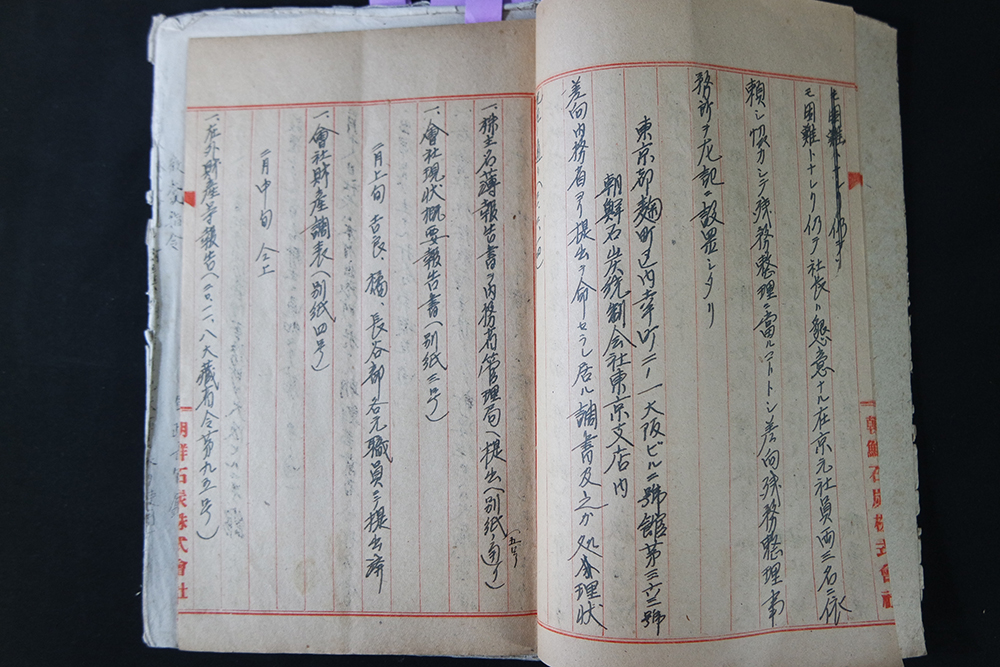 モ困難トナレリ仍テ
モ困難トナレリ仍テ社長ハ懇意ナル在京元社員両三名ニ依
頼シ 残務整理ニ當ルコトトシ差向残務整理事
務所ヲ左記ニ設置シタリ
東京都麹町区内幸町二ノ一大阪ビル二號館第三六三號
朝鮮石炭統制会社東京支店内
差向内務省ヨリ提出ヲ命セラレ居ル調書及之カ処理状
朝鮮石炭株式會社
一、株主名簿報告書ヲ内務省管理局ヘ提出(別紙ノ通リ)
(五号)
一、會社現状概要報告書(別紙三号)
一月上旬 吉良、橘、長谷部ノ各元職員ニテ提出済
一、會社財産調表(別紙四号)
二月中旬 仝上
一、在外財産等報告(二〇、一一、八大蔵省令第九五号)
朝鮮石炭株式會社